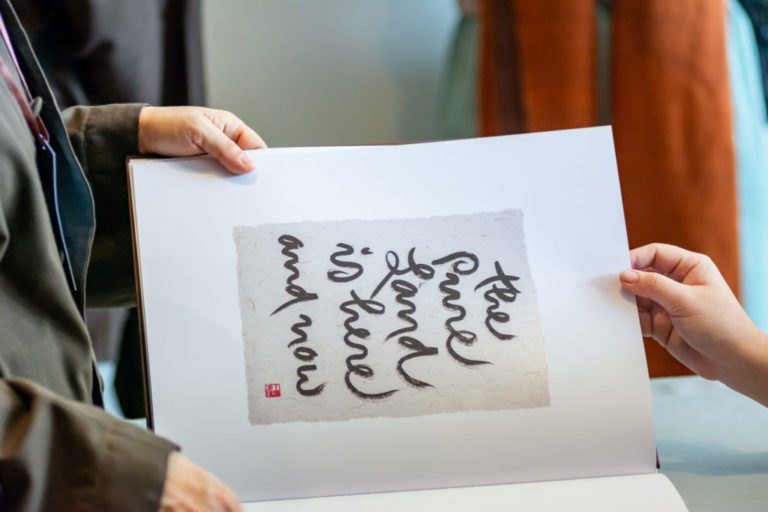 the
pure
land
is here
and now